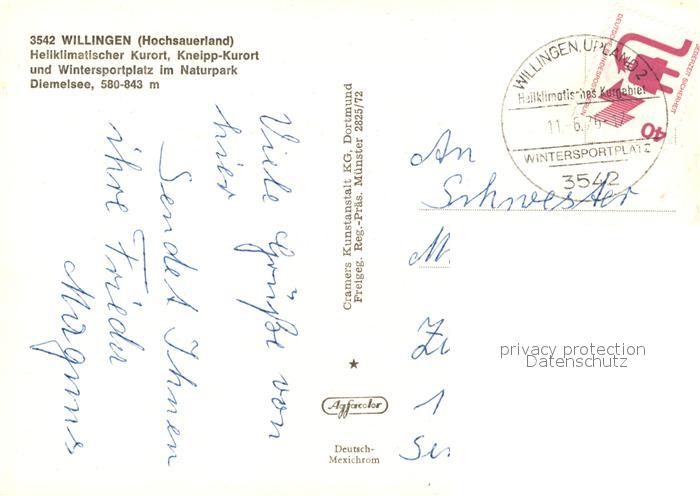 3542 WILLINGEN (Hochsauerland)
Heilklimatischer Kurort, Kneipp-Kurort
und Wintersportplatz im Naturpark
Diemelsee, 580-843 m
Viele Grüße von
hier
Sendet Ihnen
ihre Frieda
Magnus
Cramers Kunstanstalt KG, Dortmund
Freigeg. Reg.-Präs. Münster 2825/72
Agfacolor
Deutsch-
Mexichrom
WILLINGEN, UPLAND 2
Heilklimatisches Kurgebiet
11.-6.
WINTERSPORTPLATZ
3542
JEDERZEIT SICHERHEIT
40
An
Schwester
M.
1
privacy protection
Datenschutz